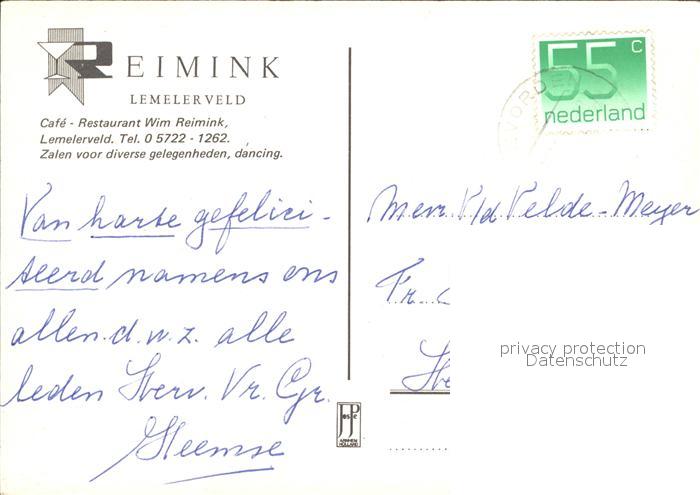 REIMINK
LEMELERVELD
Café - Restaurant Wim Reimink,
Lemelerveld. Tel. 0 5722 - 1262.
Zalen voor diverse gelegenheden, dancing.
Van harte gefelici-
teerd namens ons
allen d.w.z. alle
leden Herv. Vr. Gr.
Heemse
JosPe
ARNHEM
HOLLAND
55 c
nederland
VOORD
Mevr. V/d Velde - Meyer
Fr.
privacy protection
Datenschutz